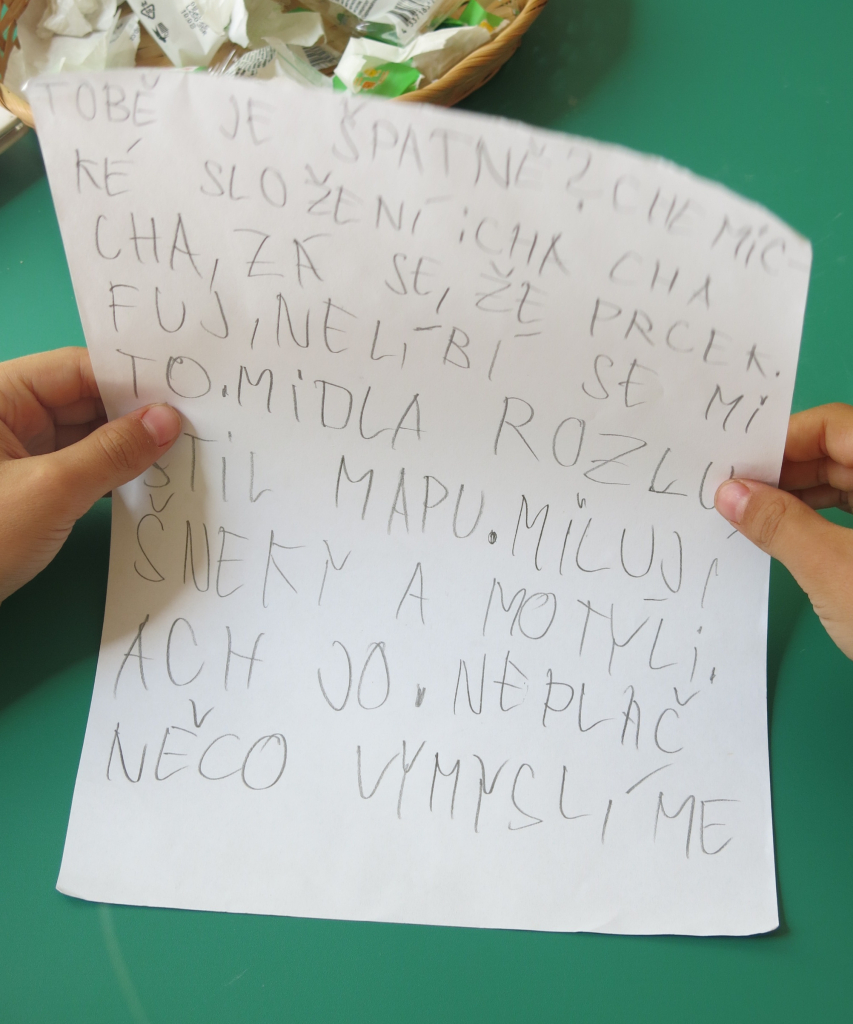 TOBĚ JE ŠPATNĚ? CHEMIC-
KÉ SLOŽENÍ iCHA CHA
CHA, ZA SE, ŽE PRCEK.
FUJ, NELÍBÍ SE Mi
TO. MiDLA ROZLU
ŠTIL MAPU. MiLUJi
ŠNEKY A MOTÝLi.
ACH JO. NEPLAČ
NĚCO VYMYSLÍME